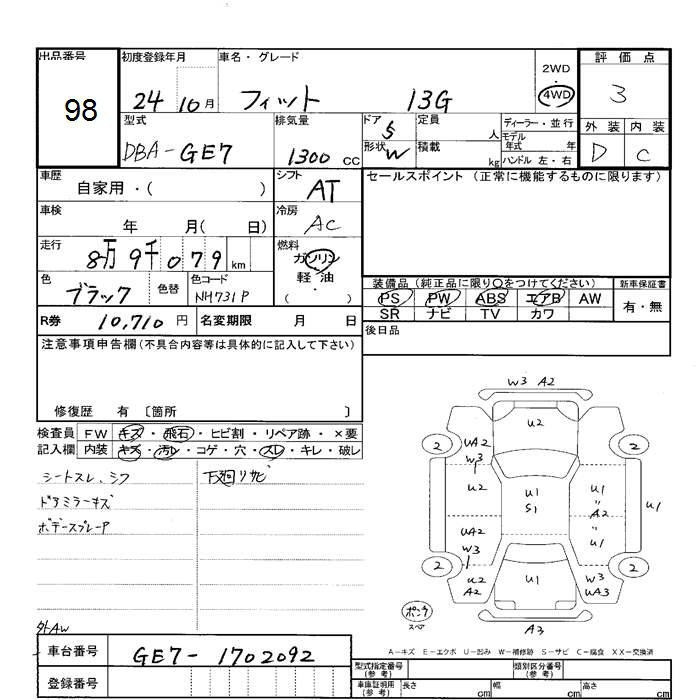 出品番号
98
初度登録年月
24 10月
車名・グレード
フィット 13G
2WD
4WD
評価点
3
外装 内装
D C
型式
DBA-GE7
排気量
1300 cc
ドア 5
形状 W
定員 人
積載 kg
ディーラー・並行
モデル年式 年
ハンドル 左・右
車歴
自家用・( )
シフト
AT
セールスポイント (正常に機能するものに限ります)
車検
年 月( 日)
冷房
AC
走行
8万9千079 km
燃料
ガソリン
軽・油
( ・ )
色
ブラック
色替
色コード
NH731P
装備品 (純正品に限り○をつけてください)
新車保証書
PS PW ABS エアB AW
有・無
SR ナビ TV カワ
R券 10,710 円
名変期限 月 日
後日品
注意事項申告欄(不具合内容等は具体的に記入して下さい)
修復歴 有 〔箇所 〕
検査員 FW キズ・飛石・ヒビ割・リペア跡・×要
記入欄 内装 キズ・汚レ・コゲ・穴・スレ・キレ・破レ
シートスレ、シワ
下廻リサビ
ドアミラーキズ
ボデースプレーP
外AW
W3 A2
U2
2
UA2
W3
2
U2
U1
S1
U1
〃
A2
〃
U1
U1
UA2
W3
2
U2
A2
U1
W3
UA3
2
パンク
スペア
A3
A-キズ E-エクボ U-凹み W-補修跡 S-サビ C-腐食 XX-交換済
車台番号
GE7-1702092
登録番号
型式指定番号
(参考)
類別区分番号
(参考)
車庫証明用
(参考)
長さ cm
幅 cm
高さ cm